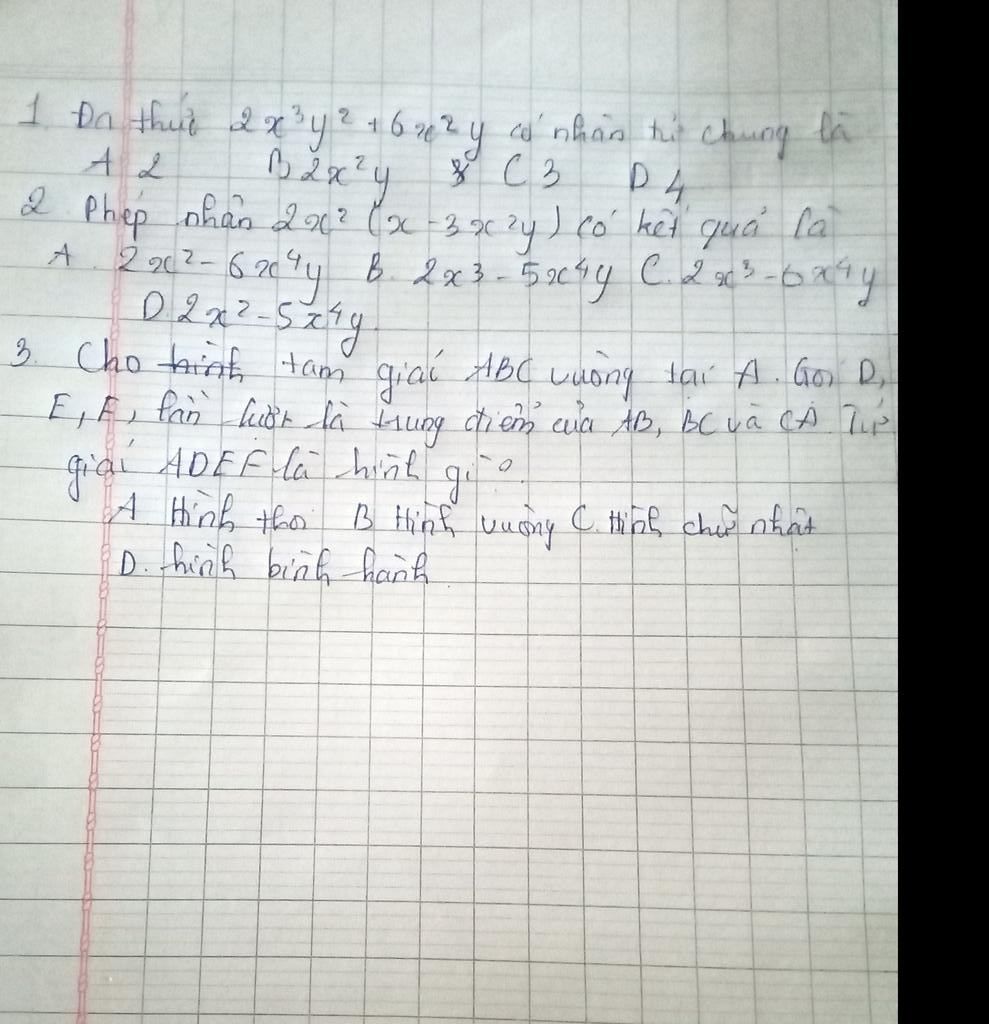 1 Đa thức 2x³y² + 6x²y có nhân tử chung là
A 2 B 2x²y C 3 D 4
2 Phép nhân 2x² (x - 3x²y) có kết quả là
A. 2x² - 6x⁴y B. 2x3 - 5x⁴y C. 2x³ - 6x⁴y
D 2x² - 5x⁴y.
3. Cho hình tam giác ABC vuông tại A. Gọi D,
E, F, lần lượt là trung điểm của AB, BC và CA Tứ
giác ADEF là hình gì?
A Hình thoi B Hình vuông C. Hình chữ nhật
D. hình bình hành